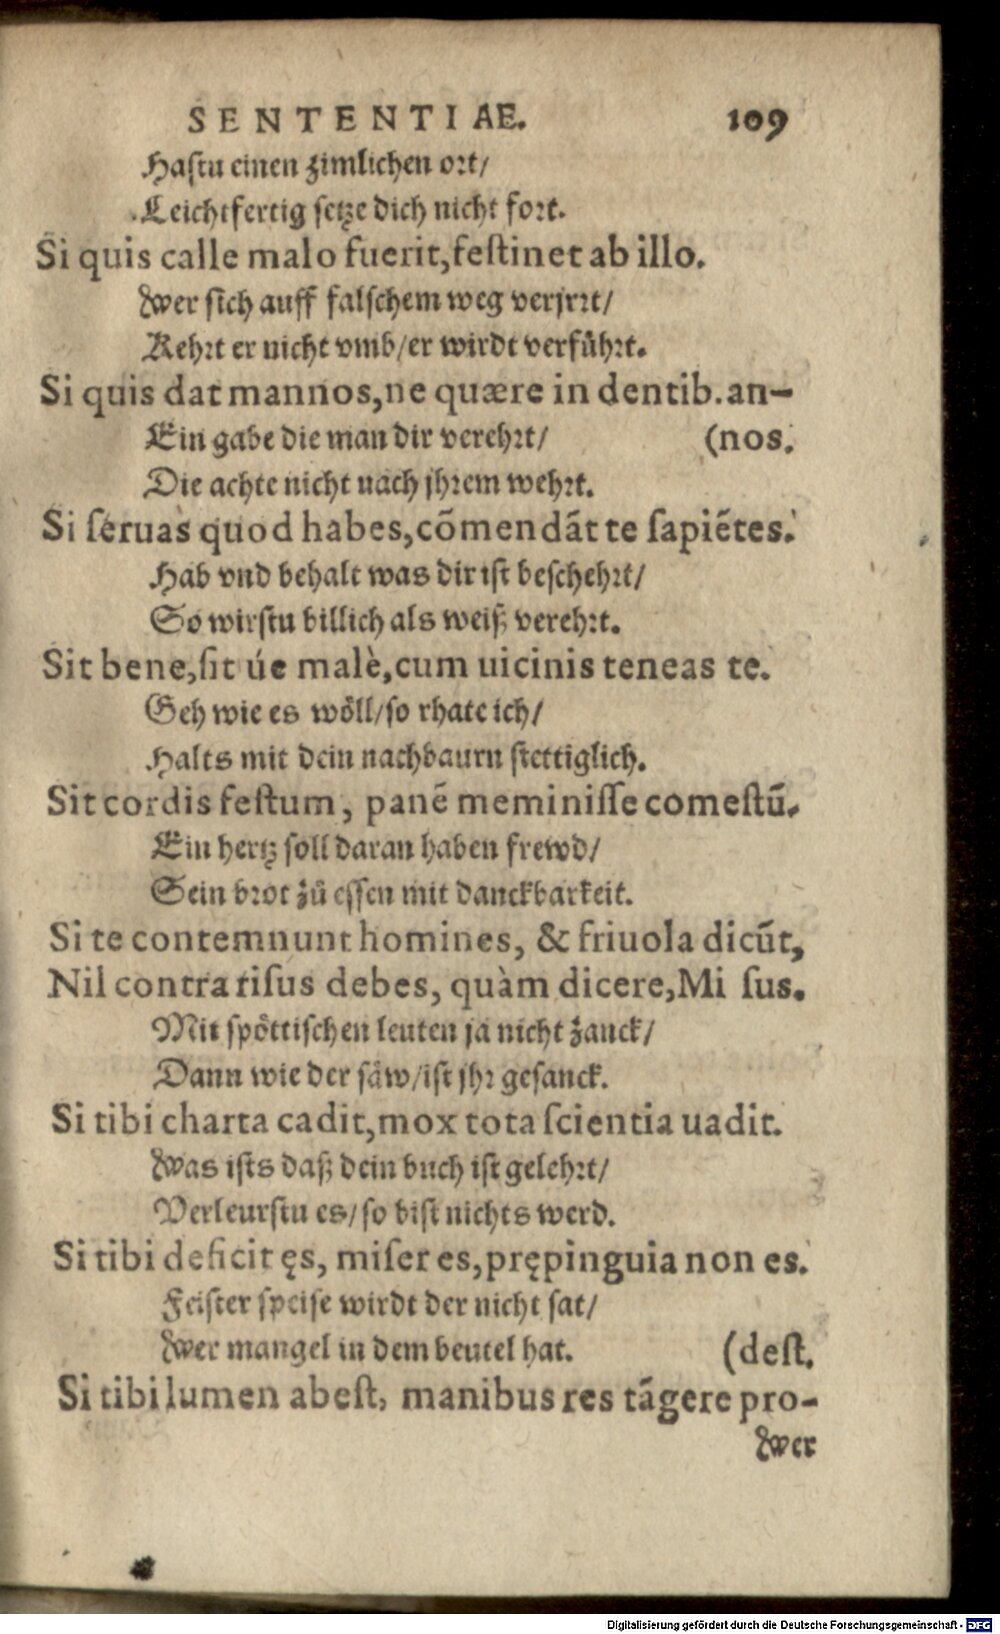 SENTENTIAE. 109
Hastu einen zimlichen ort/
Leichtfertig setze dich nicht fort.
Si quis calle malo fuerit, festinet ab illo.
Wer sich auff falschem weg verjrrt/
Kehrt er nicht vmb/er wirdt verführt.
Si quis dat mannos, ne quære in dentib. an-
Ein gabe die man dir verehrt/ (nos.
Die achte nicht nach jhrem wehrt.
Si seruas quod habes, cõmendãt te sapiẽtes.
Hab vnd behalt was dir ist beschehrt/
So wirstu billich als weiß verehrt.
Sit bene, sit úe malè, cum uicinis teneas te.
Geh wie es wöll/so rhate ich/
Halts mit dein nachbaurn stettiglich.
Sit cordis festum, panẽ meminisse comestũ.
Ein hertz soll daran haben frewd/
Sein brot zů essen mit danckbarkeit.
Si te contemnunt homines, & friuola dicũt,
Nil contra risus debes, quàm dicere, Mi sus.
Mit spöttischen leuten ja nicht zanck/
Dann wie der säw/ist jhr gesanck.
Si tibi charta cadit, mox tota scientia uadit.
Was ists daß dein buch ist gelehrt/
Verleurstu es/so bist nichts werd.
Si tibi deficit ęs, miser es, prępinguia non es.
Feister speise wirdt der nicht sat/
Wer mangel in dem beutel hat. (dest.
Si tibi lumen abest, manibus res tãgere pro-
Wer
Digitalisierung gefördert durch die Deutsche Forschungsgemeinschaft - DFG